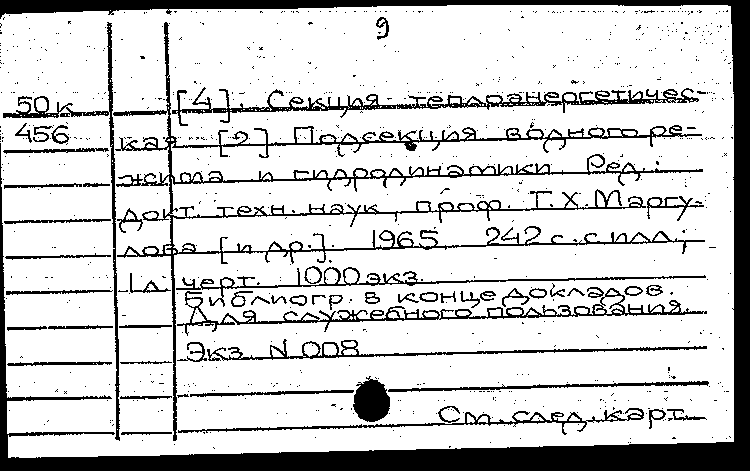 9
50к [4]. Секция теплоэнергетичес-
456 кая [2] Подсекция водного ре-
жима и гидродинамики. Ред.:
докт. техн. наук, проф. Т.Х.Маргу-
лова [и др.]. 1965 242 с. с илл.;
1 л черт. 1000 экз.
Библиогр. в конце докладов.
Для служебного пользования.
Экз N 008
См. след. карт.